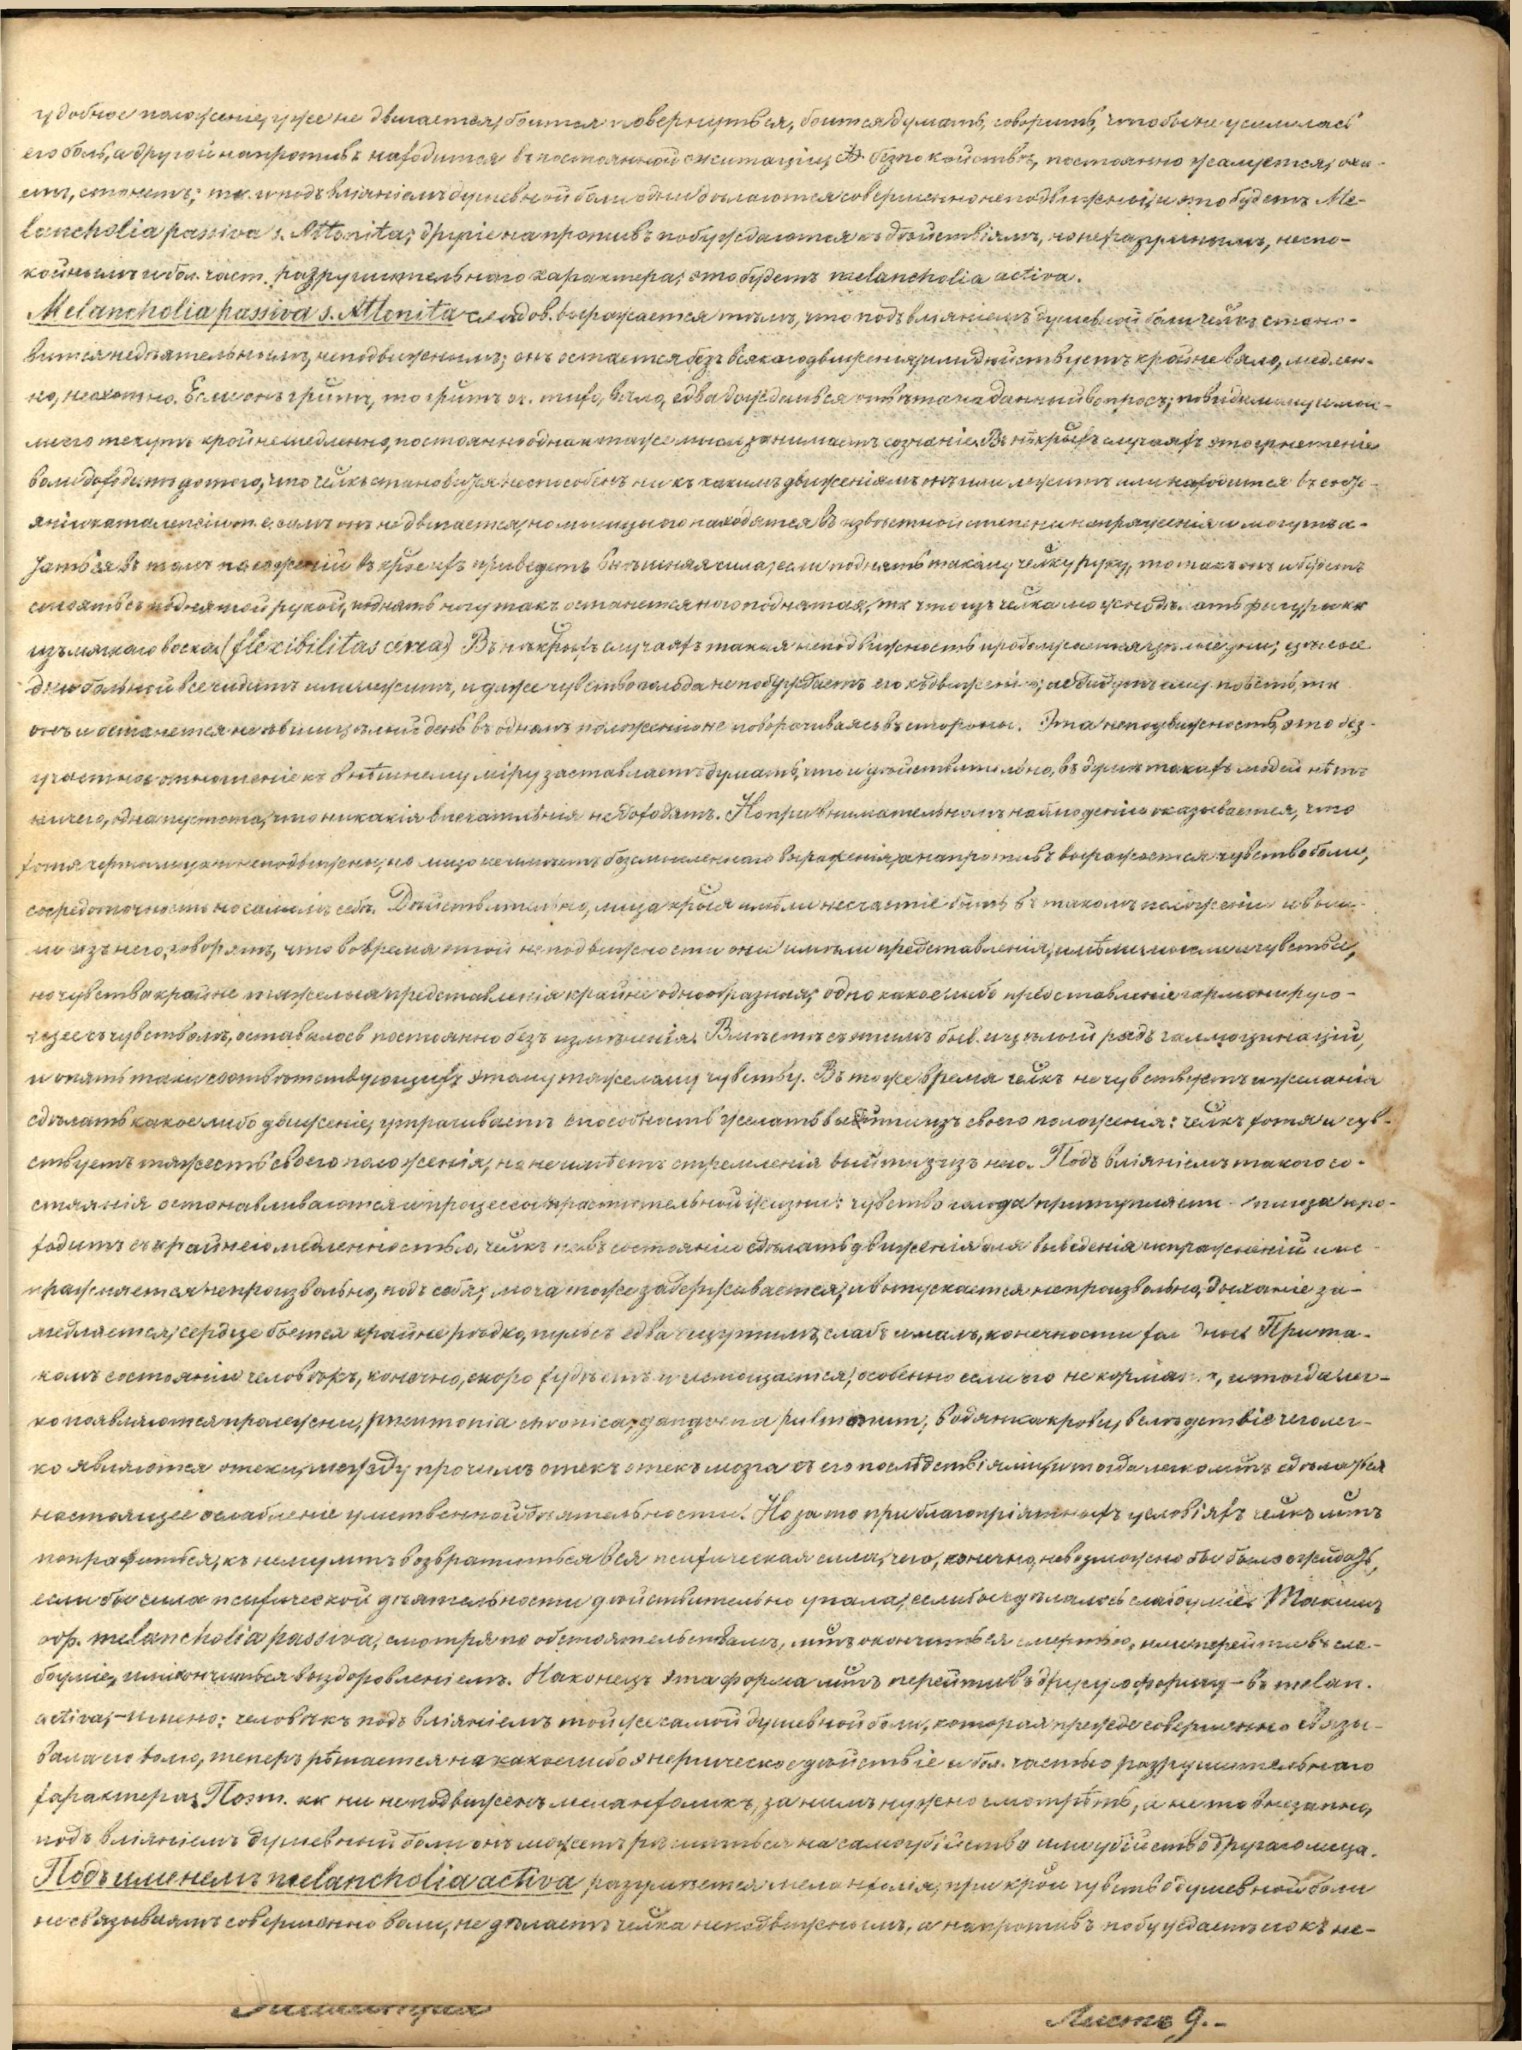 удобное положеніе, уже не двигается, боится повернуться, боится думать, говорить, чтобы не усилилась
его боль, а другой напротивъ находится въ постоянной ажитаціи, безпокойствѣ, постоянно жалуется, оха-
етъ, стонетъ; и подъ вліяніемъ душевной боли одни дѣлаются совершенно неподвижны, и это будетъ Me-
lancholia passiva s. Attonita; другіе напротивъ побуждаются къ дѣйствіямъ, но неразумнымъ, неспо-
койнымъ и бол. част. разрушительнаго характера; это будетъ melancholia activa.
Melancholia passiva s. Attonita слѣдов. выражается тѣмъ, что подъ вліяніемъ душевной боли челкъ стано-
вится недѣятельнымъ, неподвижнымъ; онъ остается безъ всякаго движенія, или дѣйствуетъ крайне вяло, медлен-
но, неохотно. Если онъ гритъ, то гритъ оч. тихо, вяло, едва дождешься отвѣта на данный вопросъ; повидимому и мы-
сли его текутъ крайне медленно, постоянно одна и таже мысль занимаетъ сознаніе. Въ нѣкрыхъ случаяхъ это угнетеніе
воли доходитъ до того, что челкъ становится неспособенъ ни къ какимъ движеніямъ, онъ или лежитъ или находится въ состо-
яніи каталепсіи, т. е. самъ онъ не двигается, но мышцы его находятся въ извѣстной степени напряженія и могутъ
въ томъ положеніи въ крое ихъ приведетъ внѣшняя сила; если поднять такому челку руку, то такъ онъ и будетъ
стоять съ поднятой рукой, поднять ногу такъ останется нога поднятая, тк что изъ челка можно дѣлать фигуры кк
изъ мягкаго воска (flexibilitas cerea) Въ нѣкрыхъ случаяхъ такая неподвижность продолжается цѣлые дни; цѣлые
дни больной все сидитъ или лежитъ, и даже чувство голода не побуждаетъ его къ движенію; не дадутъ ему поѣсть, тк
онъ и останется не ѣвши цѣлый день въ одномъ положеніи не поворачиваясь въ стороны. Эта неподвижность, это без-
участное отношеніе къ внѣшнему міру заставляетъ думать, что и дѣйствительно, въ душѣ такихъ людей нѣтъ
ничего, одна пустота, что никакія впечатлѣнія не доходятъ. Но при внимательномъ наблюденіи оказывается, что
хотя черты лица и неподвижны, но лицо не имѣетъ безсмысленнаго выраженія, а напротивъ выражается чувство боли,
сосредоточность на самомъ себѣ. Дѣйствительно, лица крыя имѣли несчастіе быть въ такомъ положеніи и выш-
ли изъ него, говорятъ, что во время этой неподвижности они имѣли представленія, имѣли мысли и чувства,
но чувства крайне тяжелыя, представленія крайне однообразныя; одно какое либо представленіе гармонирую-
щее съ чувствомъ, оставалось постоянно безъ измѣненія. Вмѣстѣ съ этимъ был. и цѣлый рядъ галлюцинацій,
и опять таки соотвѣтствующихъ этому тяжелому чувству. Въ тоже время челкъ не чувствуетъ и желанія
сдѣлать какое либо движеніе, утрачиваетъ способность желать выйти изъ своего положенія: челкъ хотя и чув-
ствуетъ тяжесть своего положенія, но не имѣетъ стремленія выйти изъ него. Подъ вліяніемъ такого со-
стоянія останавливаются и процессы растительной жизни: чувство голода притупляется пища про-
ходитъ съ крайнею медленностью, челкъ не въ состояніи сдѣлать движенія для выведенія испражненій и ис-
пражняется непроизвольно, подъ себя; моча тоже задерживается, и выпускается непроизвольно, дыханіе за-
медляется, сердце бьется крайне рѣдко, пульсъ едва ощутимъ, слабъ и малъ, конечности холодны. При та-
комъ состояніи человѣкъ, конечно, скоро худѣетъ и истощается, особенно если его не кормятъ, и тогда лег-
ко появляются пролежни, pneumonia chronica, gangraena pulmonum, водянка крови, вслѣдствіе чего лег-
ко являются отеки, между прочимъ отекъ отекъ мозга съ его послѣдствіями, и тогда легко мтъ сдѣлаться
настоящее ослабленіе умственной дѣятельности. Но за то при благопріятныхъ условіяхъ челкъ мтъ
поправиться, къ нему мтъ возвратиться вся психическая сила, чего, конечно, невозможно бы было ожидать,
если бы сила психической дѣятельности дѣйствительно упала, если бы сдѣлалось слабоуміе. Такимъ
обр. melancholia passiva, смотря по обстоятельствамъ, мтъ окончиться смертью, или перейти въ сла-
боуміе, или кончиться выздоровленіемъ. Наконецъ эта форма мтъ перейти въ другую форму – въ melan.
activa, – именно: человѣкъ подъ вліяніемъ той же самой душевной боли, которая прежде совершенно связы-
вала его волю, теперь рѣшается на какое либо энергическое дѣйствіе и бол. частью разрушительнаго
характера. Поэт. кк ни неподвиженъ меланхоликъ, за нимъ нужно смотрѣть, а не то внезапно,
подъ вліяніемъ душевной боли онъ можетъ рѣшиться на самоубійство или убійство другаго лица.
Подъ именемъ melancholia activa разумѣется меланхолія, при крой чувство душевной боли
не связываетъ совершенно воли, не дѣлаетъ челка неподвижнымъ, а напротивъ побуждаетъ его къ не-
Листъ 9.-